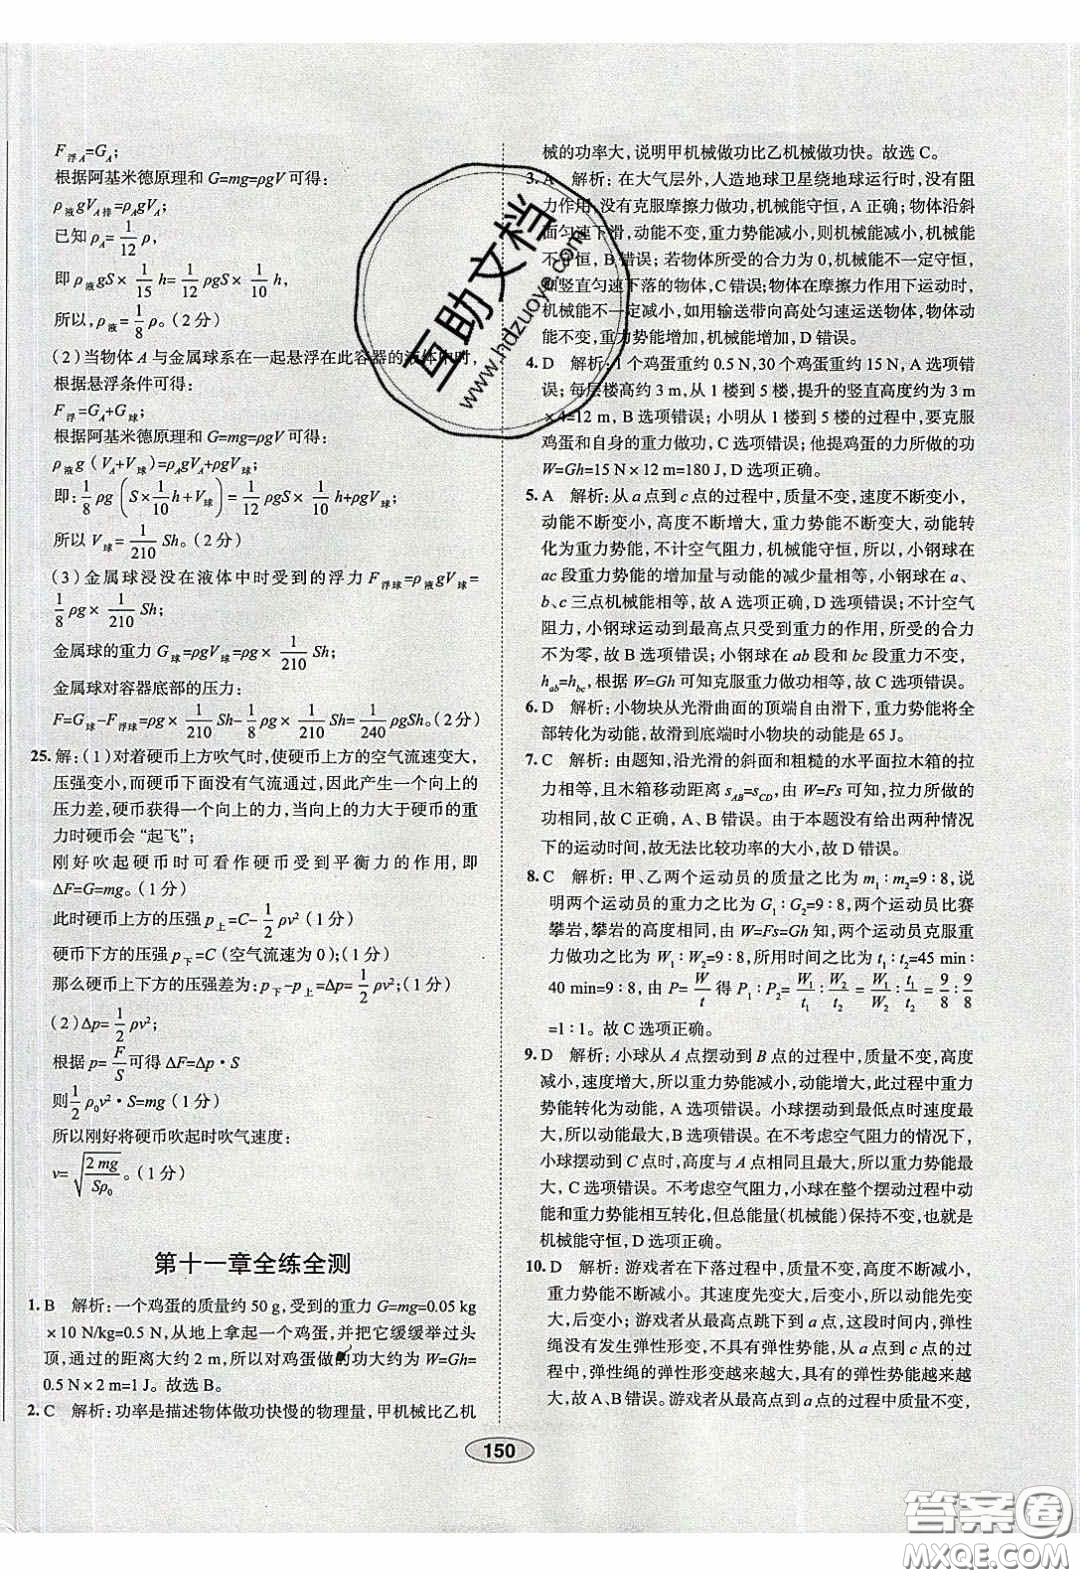 F浮A=GA;
根据阿基米德原理和 G=mg=ρgV 可得:
ρ液gVA排=ρAgVA;
已知 ρA=1/12 ρ,
即 ρ液gS×1/15 h=1/12 ρgS×1/10 h,
所以,ρ液=1/8 ρ。(2分)
(2)当物体 A 与金属球系在一起悬浮在此容器的液体中时,
根据悬浮条件可得:
F浮=GA+G球;
根据阿基米德原理和 G=mg=ρgV 可得:
ρ液g(VA+V球)=ρAgVA+ρgV球;
即:1/8 ρg(S×1/10 h+V球)=1/12 ρgS×1/10 h+ρgV球;
所以 V球=1/210 Sh。(2分)
(3)金属球浸没在液体中时受到的浮力 F浮球=ρ液gV球=
1/8 ρg×1/210 Sh;
金属球的重力 G球=ρgV球=ρg×1/210 Sh;
金属球对容器底部的压力:
F=G球-F浮球=ρg×1/210 Sh-1/8 ρg×1/210 Sh=1/240 ρgSh。(2分)
25.解:(1)对着硬币上方吹气时,使硬币上方的空气流速变大,
压强变小,而硬币下面没有气流通过,因此产生一个向上的
压力差,硬币获得一个向上的力,当向上的力大于硬币的重
力时硬币会“起飞”;
刚好吹起硬币时可看作硬币受到平衡力的作用,即
ΔF=G=mg。(1分)
此时硬币上方的压强 p上=C-1/2 ρv²(1分)
硬币下方的压强 p下=C(空气流速为0);(1分)
那么硬币上下方的压强差为:p下-p上=Δp=1/2 ρv²(1分)
(2)Δp=1/2 ρv²;
根据 p=F/S 可得 ΔF=Δp·S
则1/2 ρ0v²·S=mg(1分)
所以刚好将硬币吹起时吹气速度:
v=√(2mg/Sρ0)。(1分)
第十一章全练全测
1. B 解析:一个鸡蛋的质量约50 g,受到的重力 G=mg=0.05 kg
×10 N/kg=0.5 N,从地上拿起一个鸡蛋,并把它缓缓举过头
顶,通过的距离大约2 m,所以对鸡蛋做的功大约为 W=Gh=
0.5 N×2 m=1 J。故选B。
2. C 解析:功率是描述物体做功快慢的物理量,甲机械比乙机
械的功率大,说明甲机械做功比乙机械做功快。故选C。
3. A 解析:在大气层外,人造地球卫星绕地球运行时,没有阻
力作用,没有克服摩擦力做功,机械能守恒,A正确;物体沿斜
面匀速下滑,动能不变,重力势能减小,则机械能减小,机械能
不守恒,B错误;若物体所受的合力为0,机械能不一定守恒,
如竖直匀速下落的物体,C错误;物体在力作用下运动时,
机械能不一定减小,如用输送带向高处匀速运送物体,物体动
能不变,重力势能增加,机械能增加,D错误。
4. D 解析:1个鸡蛋重约0.5 N,30个鸡蛋重约15 N,A选项错
误;每层楼高约3 m,从1楼到5楼,提升的竖直高度约为3 m
×4=12 m,B选项错误;小明从1楼到5楼的过程中,要克服
鸡蛋和自身的重力做功,C选项错误;他提鸡蛋的力所做的功
W=Gh=15 N×12 m=180 J,D选项正确。
5. A 解析:从a点到c点的过程中,质量不变,速度不断变小,
动能不断变小,高度不断增大,重力势能不断变大,动能转
化为重力势能,不计空气阻力,机械能守恒,所以,小钢球在
ac段重力势能的增加量与动能的减少量相等,小钢球在a、
b、c三点机械能相等,故A选项正确,D选项错误;不计空气
阻力,小钢球运动到最高点只受到重力的作用,所受的合力
不为零,故B选项错误;小钢球在ab段和bc段重力不变,
hab=hbc,根据 W=Gh 可知克服重力做功相等,故C选项错误。
6. D 解析:小物块从光滑曲面的顶端自由滑下,重力势能将
全部转化为动能,故滑到底端时小物块的动能是65 J。
7. C 解析:由题知,沿光滑的斜面和粗糙的水平面拉木箱的拉
力相等,且木箱移动距离 sAB=sCD,由 W=Fs 可知,拉力所做的
功相同,故C正确,A、B错误。由于本题没有给出两种情况
下的运动时间,故无法比较功率的大小,故D错误。
8. C 解析:甲、乙两个运动员的质量之比为 m1∶m2=9∶8,说
明两个运动员的重力之比为 G1∶G2=9∶8,两个运动员比赛
攀岩,攀岩的高度相同,由 W=Fs=Gh 知,两个运动员克服重
力做功之比为 W1∶W2=9∶8,所用时间之比为 t1∶t2=45 min∶
40 min=9∶8,由 P=W/t 得 P1∶P2=W1/t1∶W2/t2=W1/W2∶t1/t2=9/8∶9/8
=1∶1。故C选项正确。
9. D 解析:小球从A点摆动到B点的过程中,质量不变,高度
减小,速度增大,所以重力势能减小,动能增大,此过程中重力
势能转化为动能,A选项错误。小球摆动到最低点时速度最
大,所以动能最大,B选项错误。在不考虑空气阻力的情况下,
小球摆动到C点时,高度与A点相同且最大,所以重力势能最
大,C选项错误。不考虑空气阻力,小球在整个摆动过程中动
能和重力势能相互转化,但总能量(机械能)保持不变,也就是
机械能守恒,D选项正确。
10. D 解析:游戏者在下落过程中,质量不变,高度不断减小,
重力势能不断减小。其速度先变大,后变小,所以动能先变
大,后变小;游戏者从最高点跳下到a点,这一段时间内,弹性
绳没有发生弹性形变,不具有弹性势能,从a点到c点的过程
中,弹性绳的弹性形变越来越大,弹性势能越来越大,
故A、B错误。游戏者从最高点跳下到a点,高度不断变小,
150
互助文档
www.hdzuoye.com
答案圈
MXQE.COM